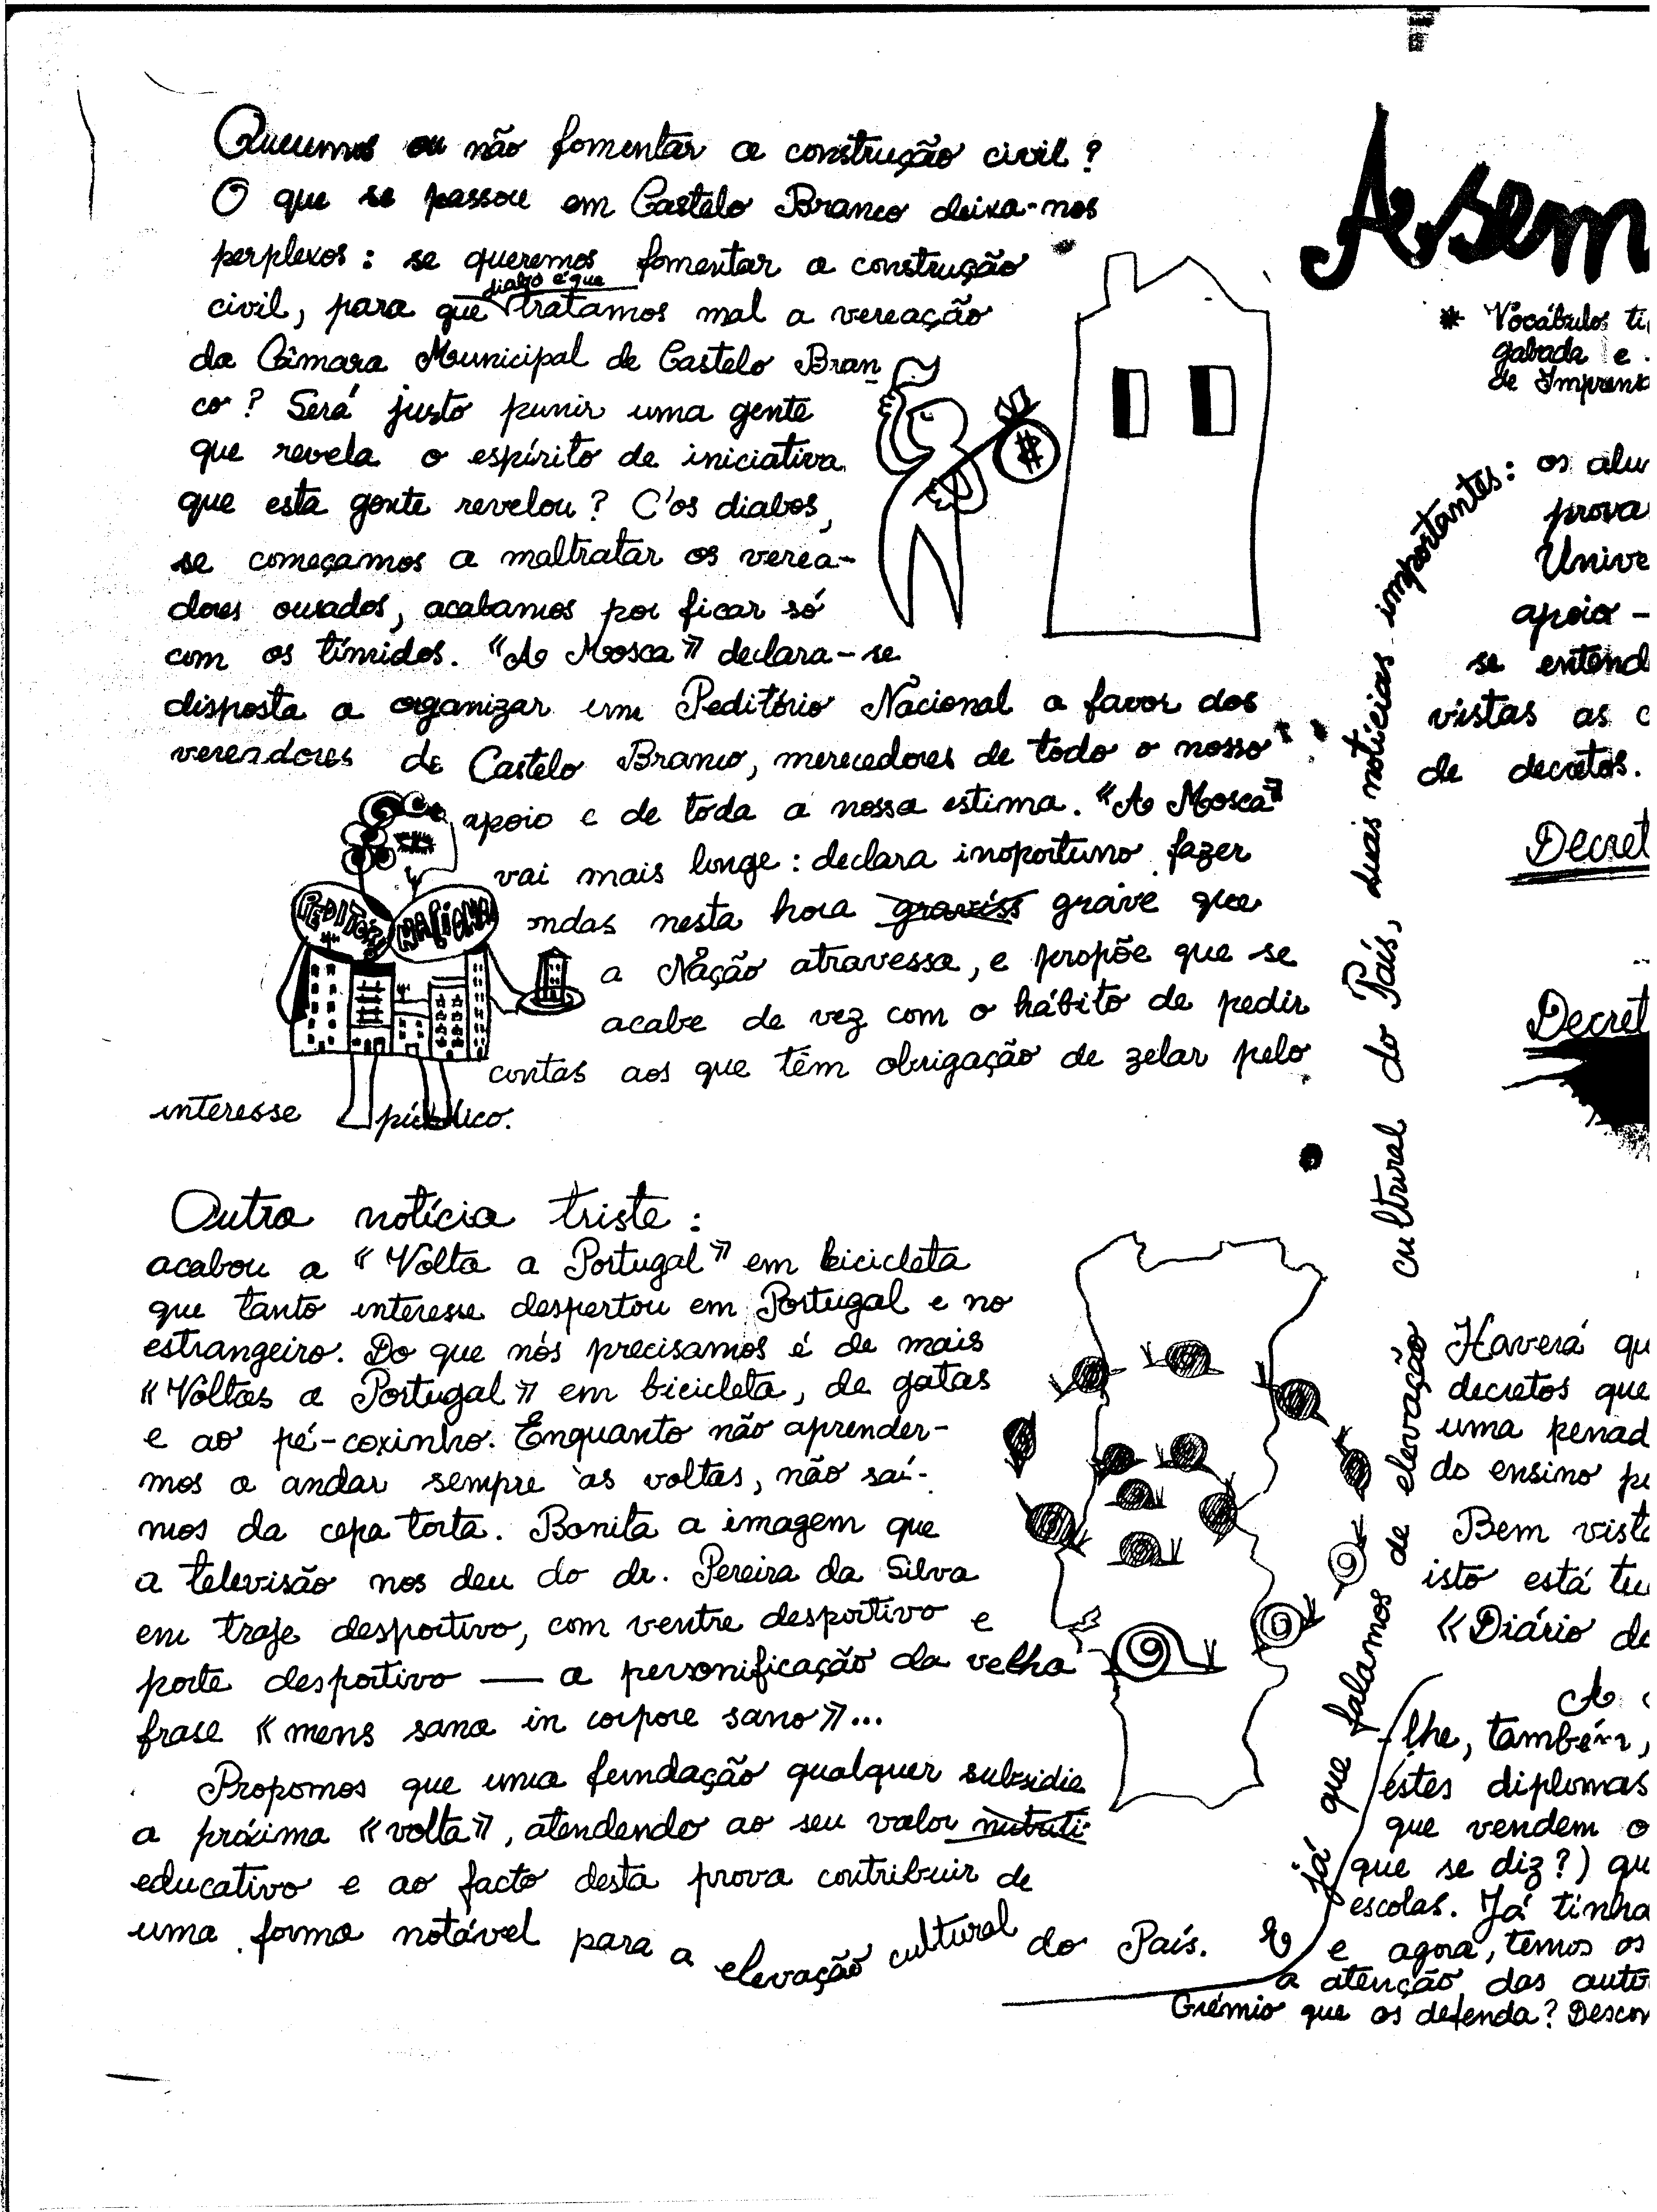 Queremos ou não fomentar a construção civil?
O que se passou em Castelo Branco deixa-nos
perplexos: se queremos fomentar a construção
diabo é que
civil, para que tratamos mal a vereação
da Câmara Municipal de Castelo Bran
co? Será justo punir uma gente
que revela o espírito de iniciativa
que esta gente revelou? C'os diabos,
se começamos a maltratar os verea-
dores ousados, acabamos por ficar só
com os tímidos. «A Mosca» declara-se
disposta a organizar um Peditório Nacional a favor dos
vereadores de Castelo Branco, merecedores de todo o nosso
apoio e de toda a nossa estima. «A Mosca»
vai mais longe: declara inoportuno fazer
ondas nesta hora graviss grave que
a Nação atravessa, e propõe que se
acabe de vez com o hábito de pedir
contas aos que têm obrigação de zelar pelo
interesse público.
PEDITÓRIO NACIONAL
Outra notícia triste:
acabou a «Volta a Portugal» em bicicleta
que tanto interesse despertou em Portugal e no
estrangeiro. Do que nós precisamos é de mais
«Voltas a Portugal» em bicicleta, de gatas
e ao pé-coxinho. Enquanto não aprender-
mos a andar sempre às voltas, não saí-
mos da cepa torta. Bonita a imagem que
a televisão nos deu do dr. Pereira da Silva
em traje desportivo, com ventre desportivo e
porte desportivo — a personificação da velha
frase «mens sana in corpore sano»...
Propomos que uma fundação qualquer subsidie
a próxima «volta», atendendo ao seu valor nutriti
educativo e ao facto desta prova contribuir de
uma forma notável para a elevação cultural do País. E
já que falamos de elevação cultural do País, duas notícias importantes: os alu
prova
Unive
apoio -
se entend
vistas as c
de decretos.
A sem
* Vocábulos ti
gabada e
de Imprens
Decret
Decret
Haverá qu
decretos que
uma penad
do ensino pe
Bem vist
isto está tu
«Diário do
A
lhe, também,
êstes diplomas
que vendem o
que se diz?) qu
escolas. Já tinha
e agora, temos os
a atenção das auto
Grémio que os defenda? Descon